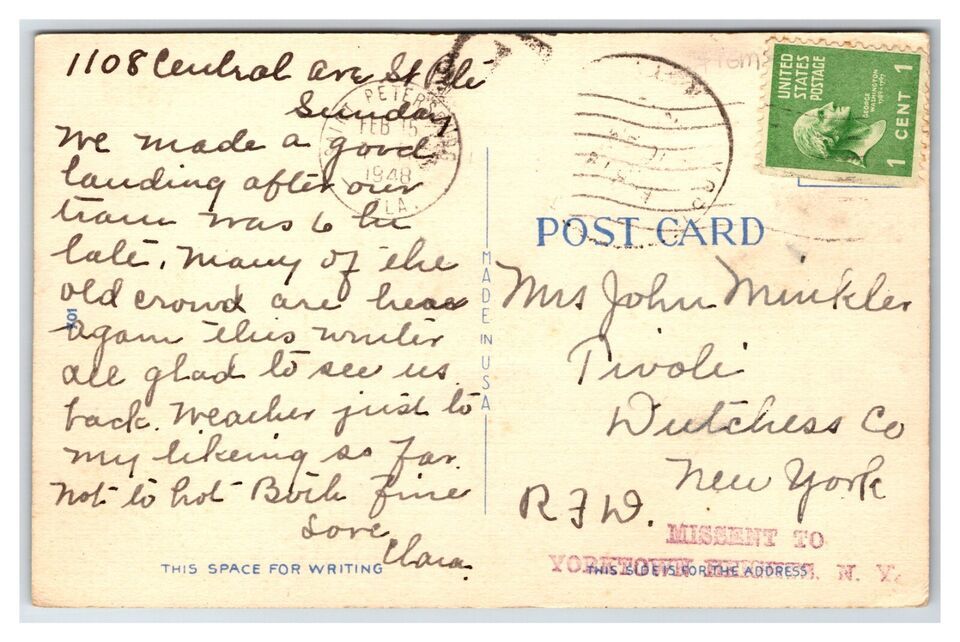 1108 Central Ave St Pete
Sunday
We made a good
landing after our
train was 6 hr
late. Many of the
old crowd are here
again this winter
all glad to see us
back. Weather just to
my likeing so far.
Not to hot Both fine
Love
Clara
THIS SPACE FOR WRITING
PETERSBURG
FEB 15
1948
FLA.
MADE IN USA
UNITED
STATES
POSTAGE
GEORGE
WASHINGTON
1789-1797
1 CENT 1
POST CARD
Mrs John Minkler
Tivoli
Dutchess Co
New York
R.F.D.
MISSENT TO
YORKTOWN HEIGHTS, N. Y.
THIS SIDE IS FOR THE ADDRESS